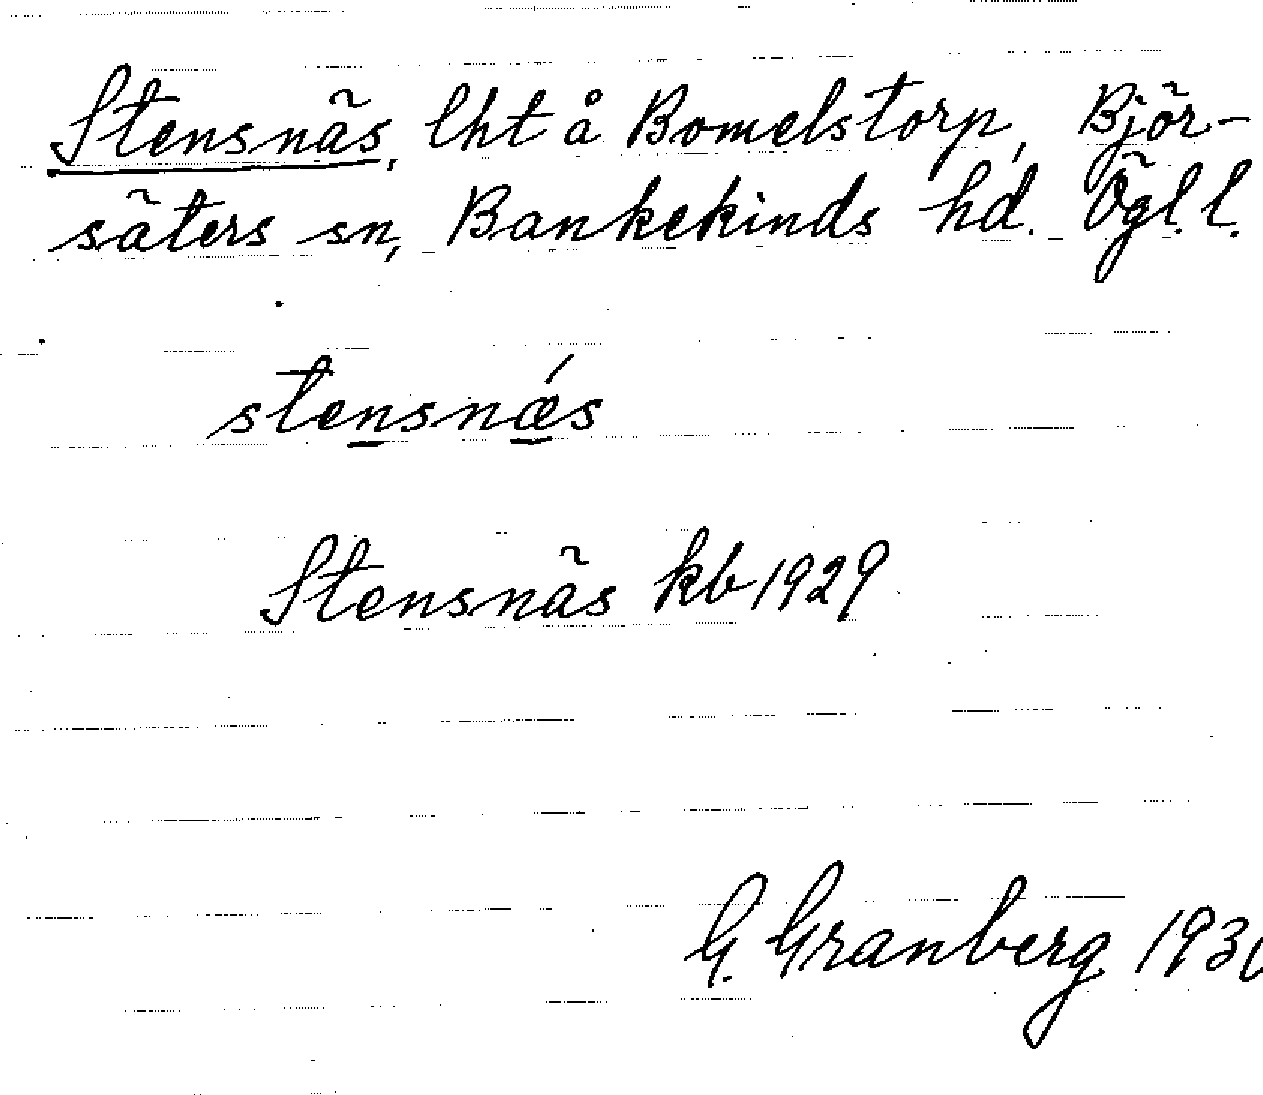 Stensnäs, lht å Bomelstorp, Björ-
säters sn, Bankekinds hd. Ögl. l.
stensnǽs
Stensnäs kb 1929
G. Granberg